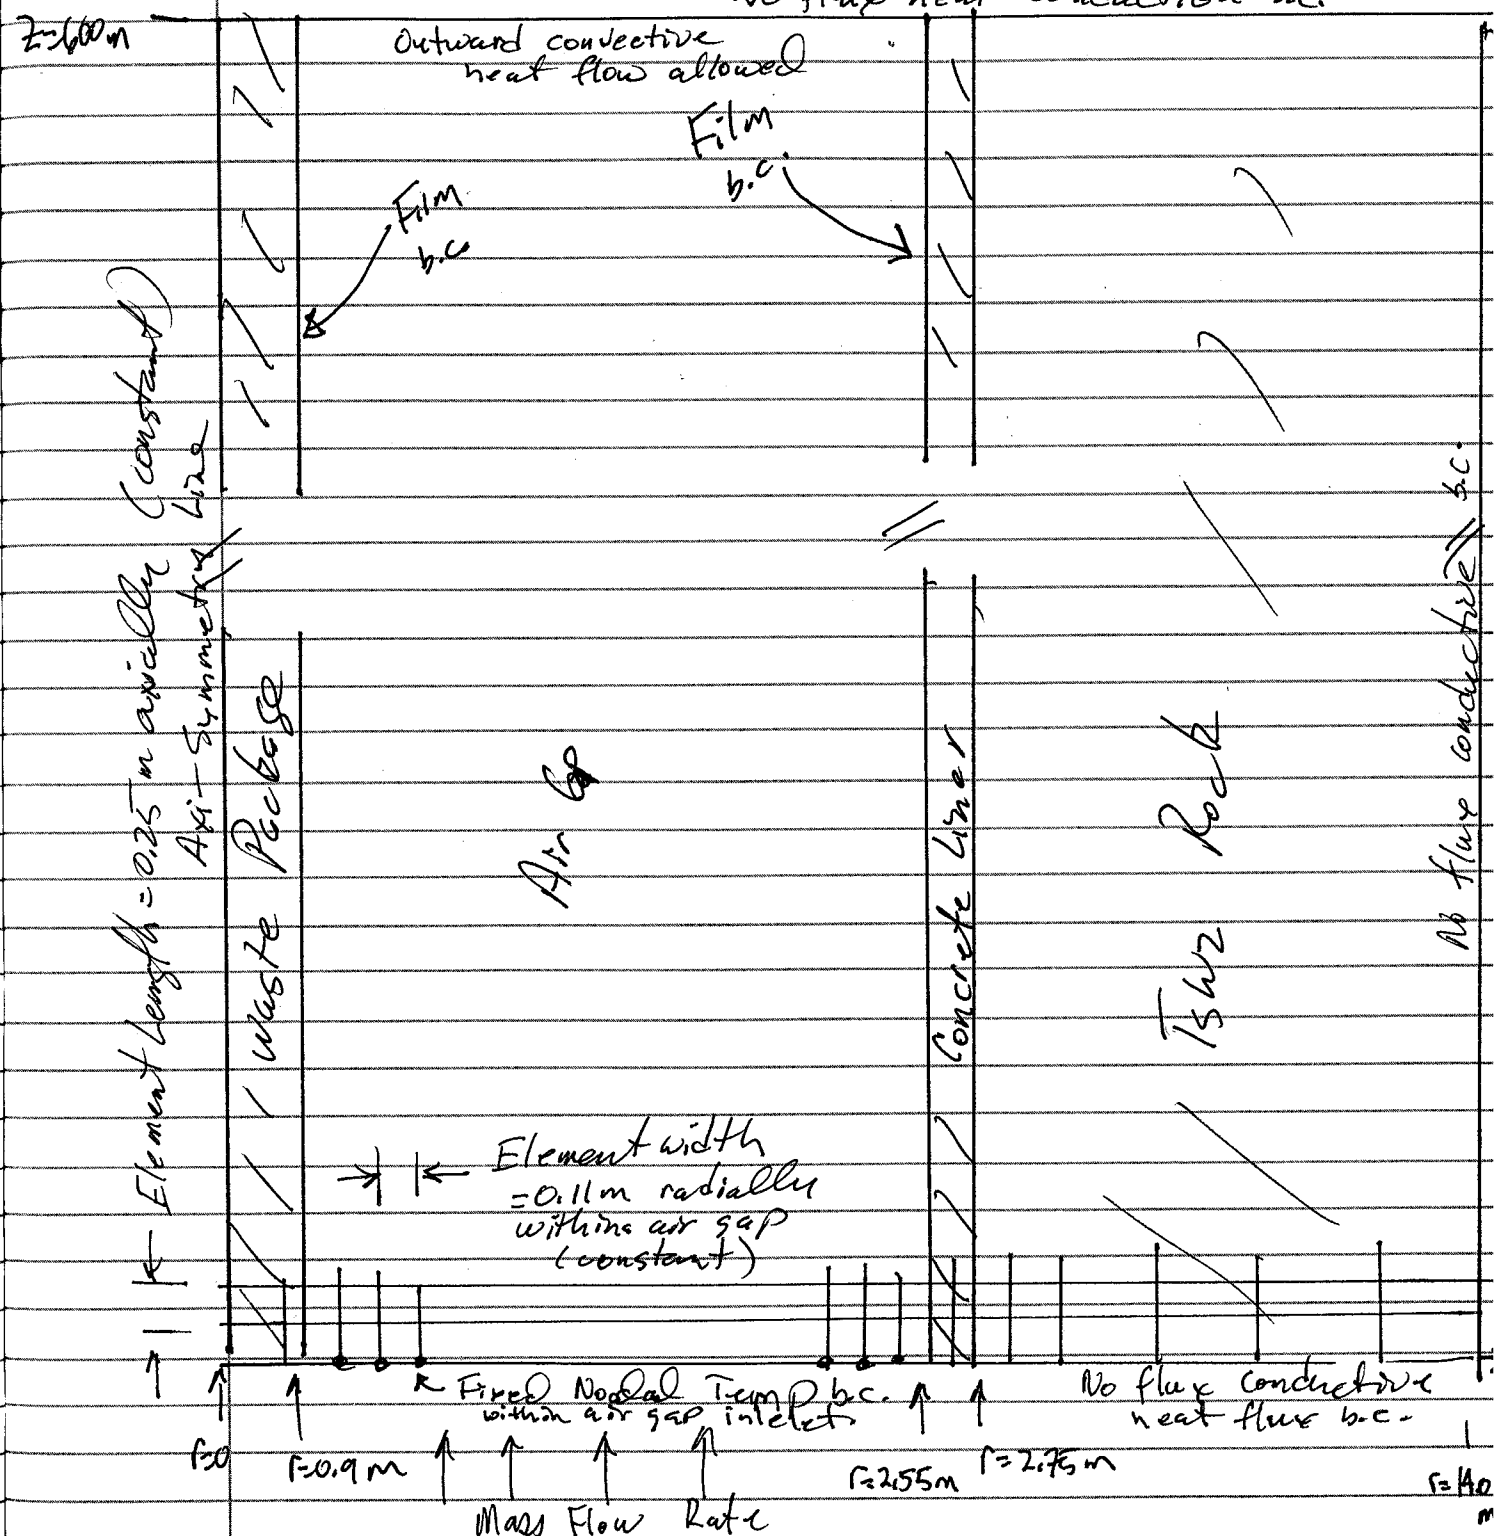 No flux heat conduction b.c.
Z=600m
Outward convective
heat flow allowed
Film
b.c.
Film
b.c.
Element Length = 0.25 m axially (constant)
Axi-Symmetry Line
Waste Package
Air Gap
Concrete Liner
TSw2 Rock
No flux conductive b.c.
Element width
=0.11m radially
within air gap
(constant)
Fixed Nodal Temp b.c.
within air gap inlet
No flux conductive
heat flux b.c.
r=0
r=0.9 m
r=2.55m
r=2.75m
r=14.0
m
Mass Flow Rate